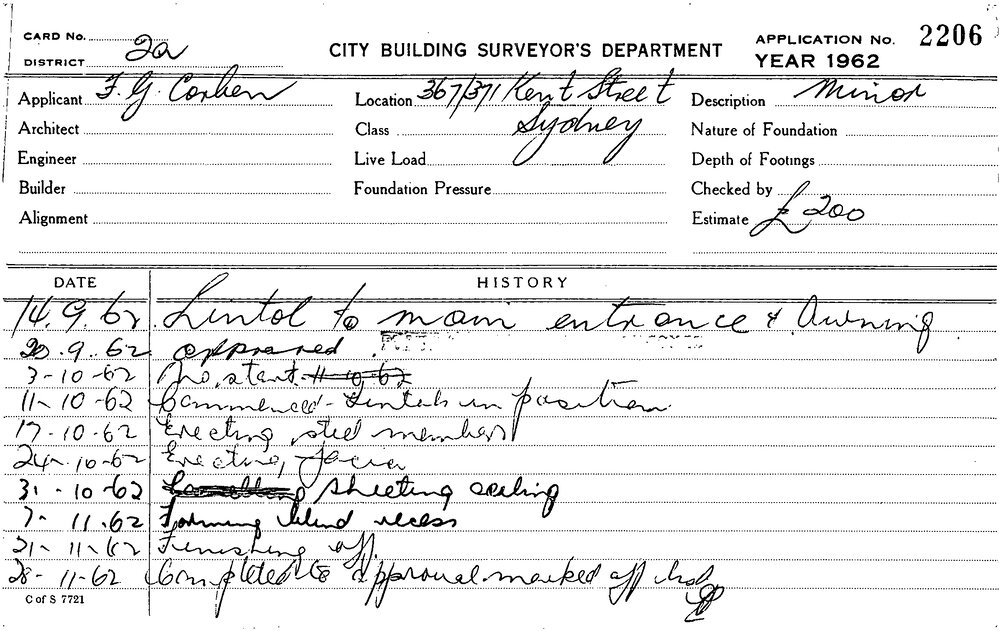 CARD No.
2a
DISTRICT
CITY BUILDING SURVEYOR'S DEPARTMENT
APPLICATION No. 2206
YEAR 1962
Applicant F. G. Corben
Location 367/371 Kent Street
Description Minor
Architect
Class Sydney
Nature of Foundation
Engineer
Live Load
Depth of Footings
Builder
Foundation Pressure
Checked by
Alignment
Estimate £200
DATE HISTORY
14.9.62 Lintol to main entrance & Awning
20.9.62 approved
3-10-62 No start 11-10-62
11-10-62 Commenced - Lintols in position
17-10-62 Erecting steel members
24-10-62 Erecting facia
31-10-62 sheeting ceiling
7-11.62 Forming blind recess
21-11-62 Finishing off.
28-11-62 Completed to approval marked off
C of S 7721